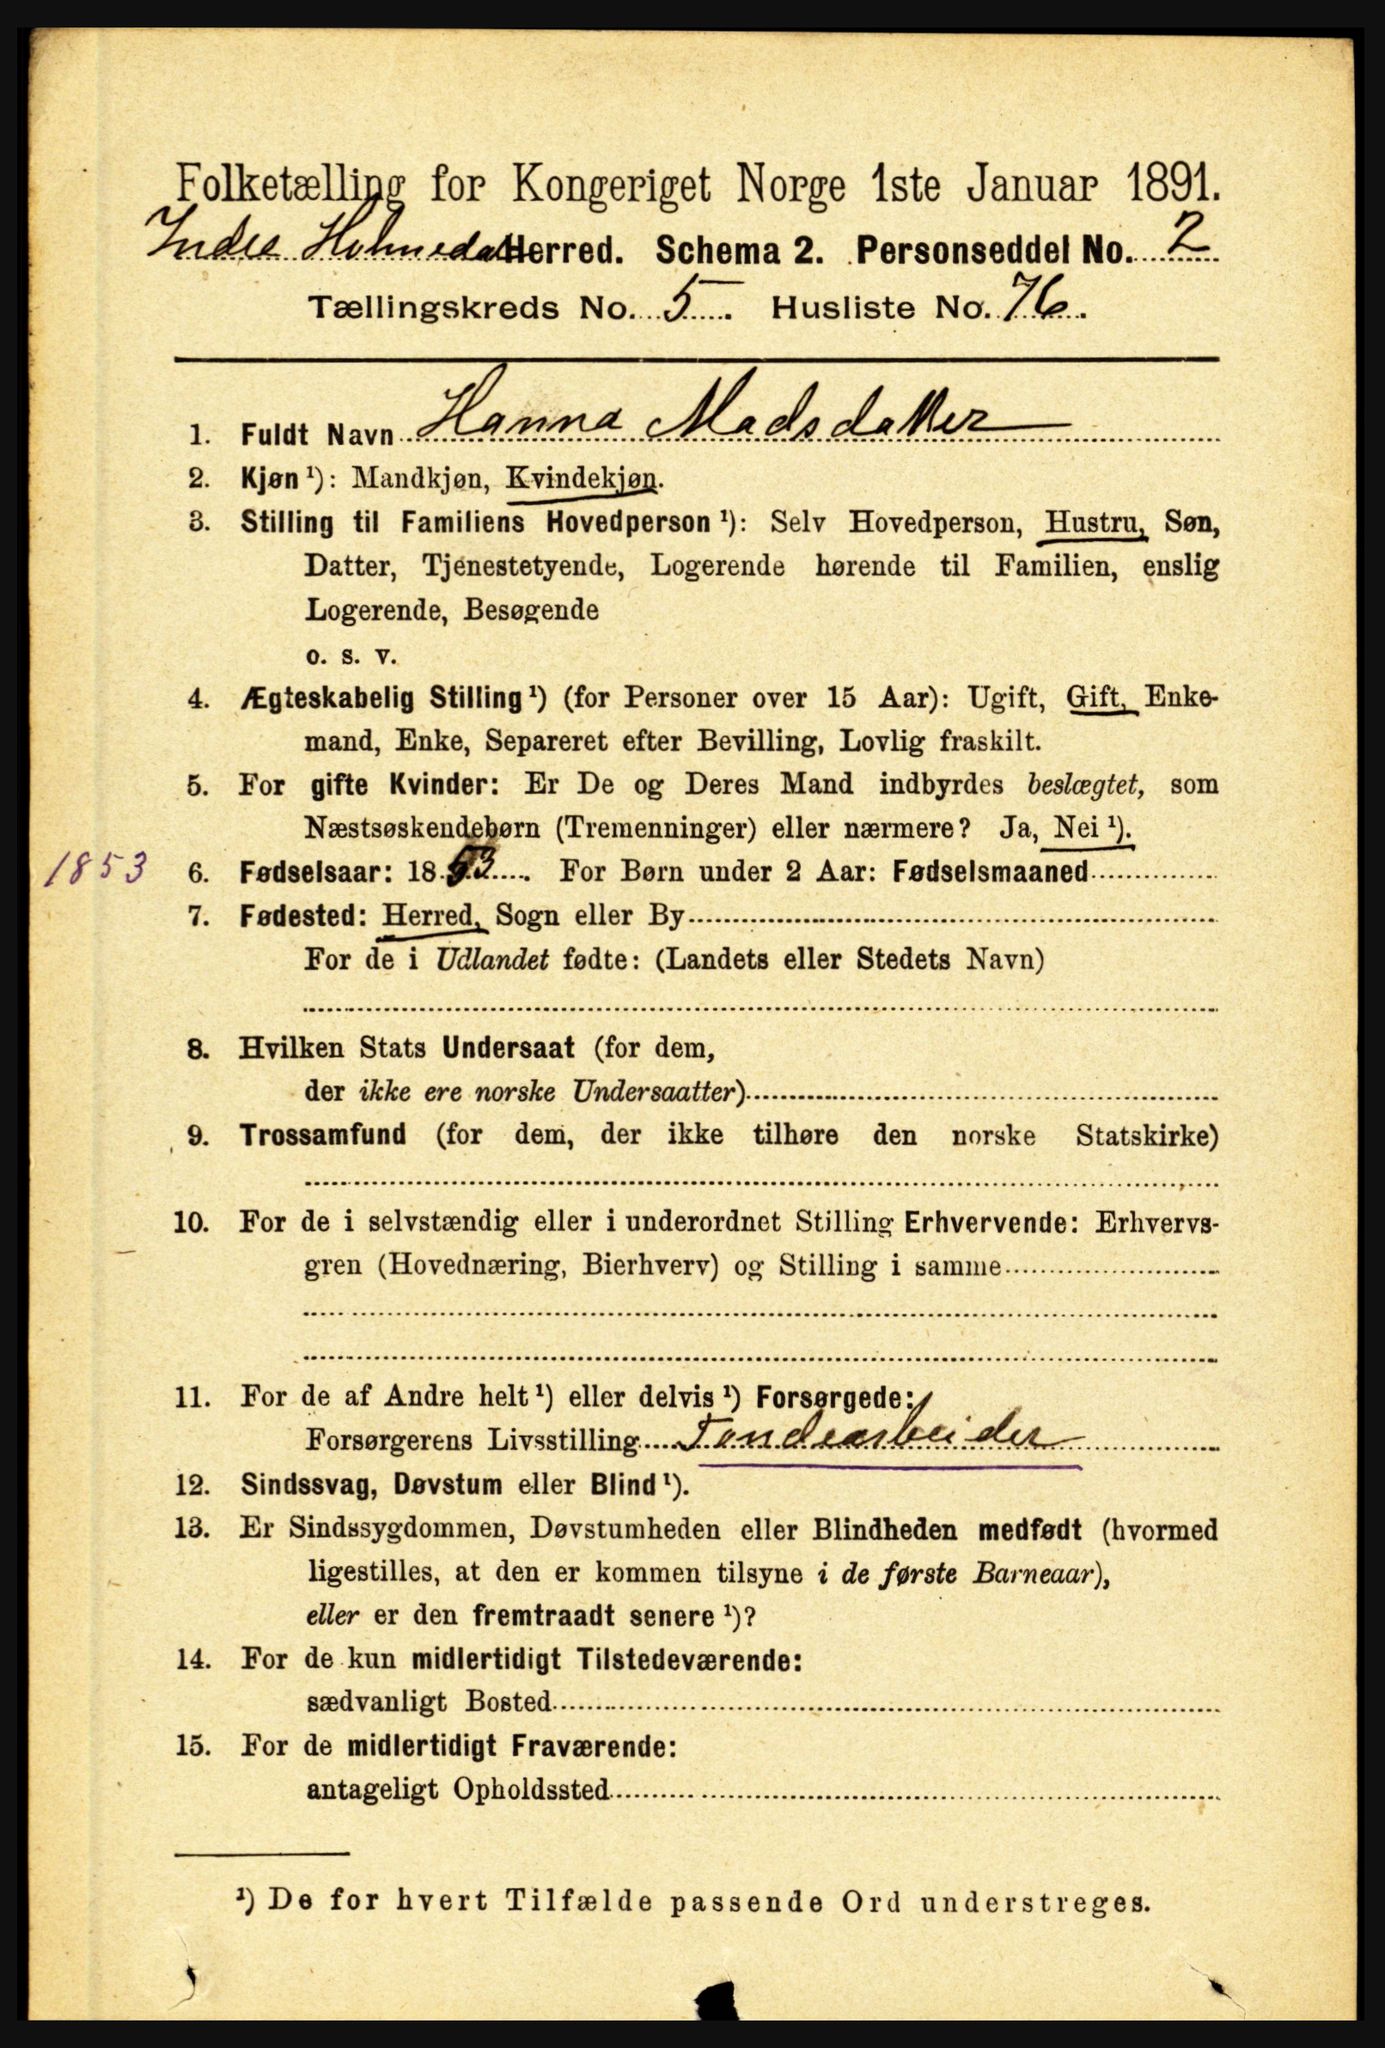 Folketælling for Kongeriget Norge 1ste Januar 1891.
Indre Holmedal Herred. Schema 2. Personseddel No. 2
Tællingskreds No. 5. Husliste No. 76.
1. Fuldt Navn Hanna Madsdatter
2. Kjøn ¹): Mandkjøn, Kvindekjøn.
3. Stilling til Familiens Hovedperson ¹): Selv Hovedperson, Hustru, Søn,
Datter, Tjenestetyende, Logerende hørende til Familien, enslig
Logerende, Besøgende
o. s. v.
4. Ægteskabelig Stilling ¹) (for Personer over 15 Aar): Ugift, Gift, Enke-
mand, Enke, Separeret efter Bevilling, Lovlig fraskilt.
5. For gifte Kvinder: Er De og Deres Mand indbyrdes beslægtet, som
Næstsøskendebørn (Tremenninger) eller nærmere? Ja, Nei ¹).
1853 6. Fødselsaar: 1853. For Børn under 2 Aar: Fødselsmaaned
7. Fødested: Herred, Sogn eller By
For de i Udlandet fødte: (Landets eller Stedets Navn)
8. Hvilken Stats Undersaat (for dem,
der ikke ere norske Undersaatter)
9. Trossamfund (for dem, der ikke tilhøre den norske Statskirke)
10. For de i selvstændig eller i underordnet Stilling Erhvervende: Erhvervs-
gren (Hovednæring, Bierhverv) og Stilling i samme
11. For de af Andre helt ¹) eller delvis ¹) Forsørgede:
Forsørgerens Livsstilling Tøndearbeider
12. Sindssvag, Døvstum eller Blind ¹).
13. Er Sindssygdommen, Døvstumheden eller Blindheden medfødt (hvormed
ligestilles, at den er kommen tilsyne i de første Barneaar),
eller er den fremtraadt senere ¹)?
14. For de kun midlertidigt Tilstedeværende:
sædvanligt Bosted
15. For de midlertidigt Fraværende:
antageligt Opholdssted
¹) De for hvert Tilfælde passende Ord understreges.